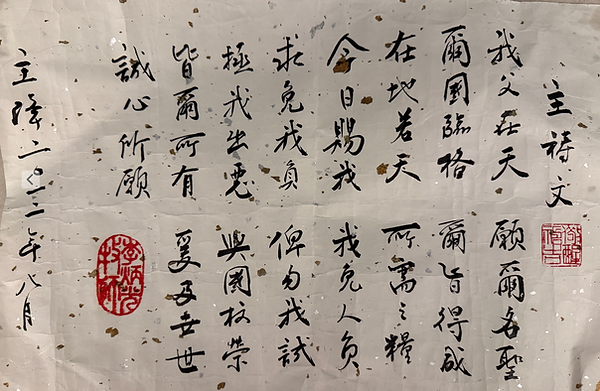 主祷文
我父在天 願爾名聖
爾國臨格 爾旨得成
在地若天 所需之糧
今日賜我 我免人負
求免我負 俾勿我試
我出惡 與國权榮
皆爾所有 爰及世世
誠心所願
主降二〇二二年八月
李炳光
牧師